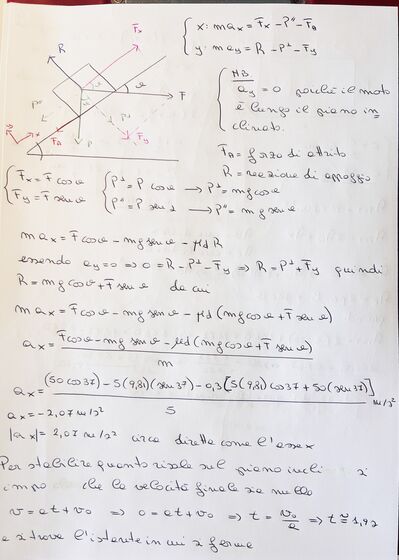 x: m ax = Fx - P" - FA
y: m ay = R - P⊥ - Fy
R
Fx
θ
F
P"
FA
P
Fy
x
NB
ay = 0 poiché il moto
è lungo il piano in=
clinato.
FA = forza di attrito
R = reazione di appoggio
Fx = F cos θ
Fy = F sen θ
P⊥ = P cos θ → P⊥ = mg cos θ
P" = P sen → P" = mg sen θ
m ax = F cos θ - mg sen θ - μd R
essendo ay = 0 ⇒ 0 = R - P⊥ - Fy ⇒ R = P⊥ + Fy quindi
R = mg cos θ + F sen θ da cui
m ax = F cos θ - mg sen θ - μd (mg cos θ + F sen θ)
ax = F cos θ - mg sen θ - μd (mg cos θ + F sen θ)
m
ax = (50 cos 37) - 5(9,81)(sen 37) - 0,3 [5(9,81) cos 37 + 50(sen 37)] m/s²
5
ax = -2,07 m/s²
|ax| = 2,07 m/s² circa diretta come l'asse x
Per stabilire quanto risale sul piano incli si
impo che la velocità finale sia nulla
v = at + v0 ⇒ 0 = at + v0 ⇒ t = v0/a ⇒ t ≅ 1,92
e si trova l'istante in cui si ferma